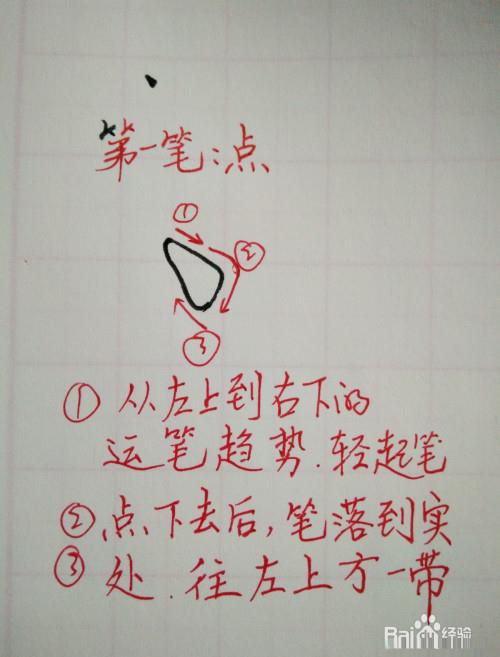 第一笔:点
①
②
③
①从左上到右下的
运笔趋势.轻起笔
②点下去后,笔落到实
③处.往左上方一带
Bai 经验